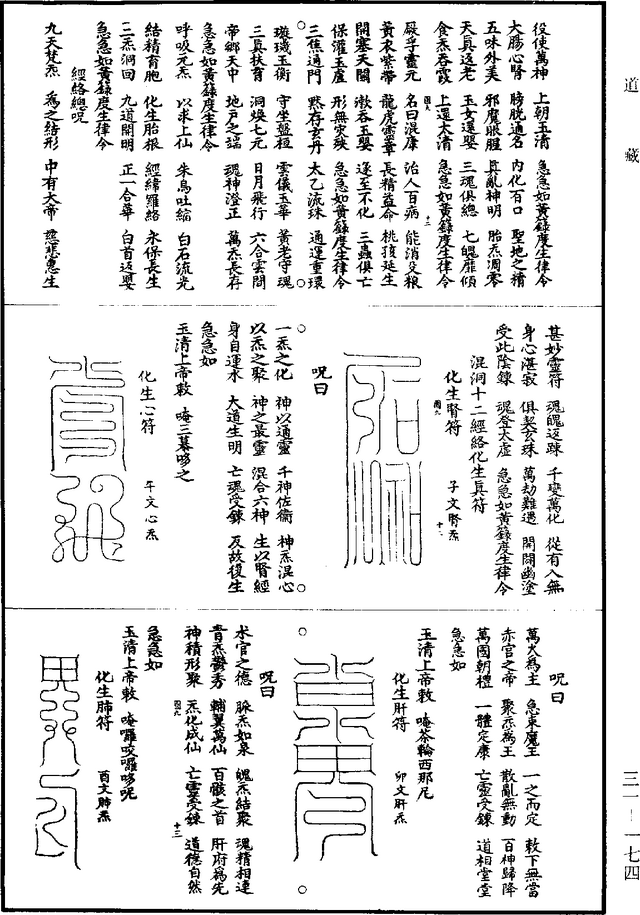 道藏
役使萬神 上朝玉清 急急如黃籙度生律令
大腸心腎 膀胱通名 內化百口 聖地之精
五味外美 邪魔眼腥 真亂神明 胎炁凋零
天真返老 玉女還嬰 三魂俱總 七魄靡傾
食炁吞霞 上還太清 急急如黃籙度生律令
厥孚靈元 名曰混康 治人百病 能消五粮
黃衣紫帶 龍虎靈章 長精益命 桃拔延生
開塞天關 漱吞玉嬰 逐至不化 三蟲俱亡
保灌玉廬 形無灾殃 急急如黃籙度生律令
三焦通門 默存玄丹 太乙流珠 通運重環
璇璣玉衡 守坐盤桓 雲儀玉華 黃老守魂
三真扶育 洞煥七元 日月飛行 六合雲間
帝鄉天中 地戶之端 魂神澄正 萬炁長存
急急如黃籙度生律令
呼吸元炁 以求上仙 朱鳥吐縮 白石流光
結精育胞 化生胎根 經緯羅絡 永保長生
二炁洞回 九道開明 正一合華 白首返嬰
急急如黃籙度生律令
經絡總呪
九天梵炁 為之結形 中有大帝 慈悲惠生
甚妙靈符 魂魄返踈 千變萬化 從有入無
身心湛寂 俱契玄珠 萬劫難遇 開闢幽塗
受此陰鍊 魂登太虛 急急如黃籙度生律令
混洞十二經絡化生真符
化生腎符 子文腎炁
呪曰
一炁之化 神以通靈 千神佐衞 神炁混心
以炁之聚 神之最靈 混合六神 生以腎經
身自運水 大道生明 亡魂受鍊 反故復生
急急如
玉清上帝敕 唵三暮哆之
化生心符 午文心炁
呪曰
萬火為主 急束魔王 一之而定 敕下無當
赤官之帝 聚炁為王 散亂無動 百神歸降
萬國朝禮 一體定康 亡靈受鍊 道相堂堂
急急如
玉清上帝敕 唵荼輪西那尼
化生肝符 卯文肝炁
呪曰
水官之德 脉炁如泉 魄炁結聚 魂精相連
青炁鬱秀 輔翼萬仙 百骸之首 肝府為先
神積形聚 炁化成仙 亡靈受鍊 道德自然
急急如
玉清上帝敕 唵囉咬囉哆呢
化生肺符 酉文肺炁
三一一一七四